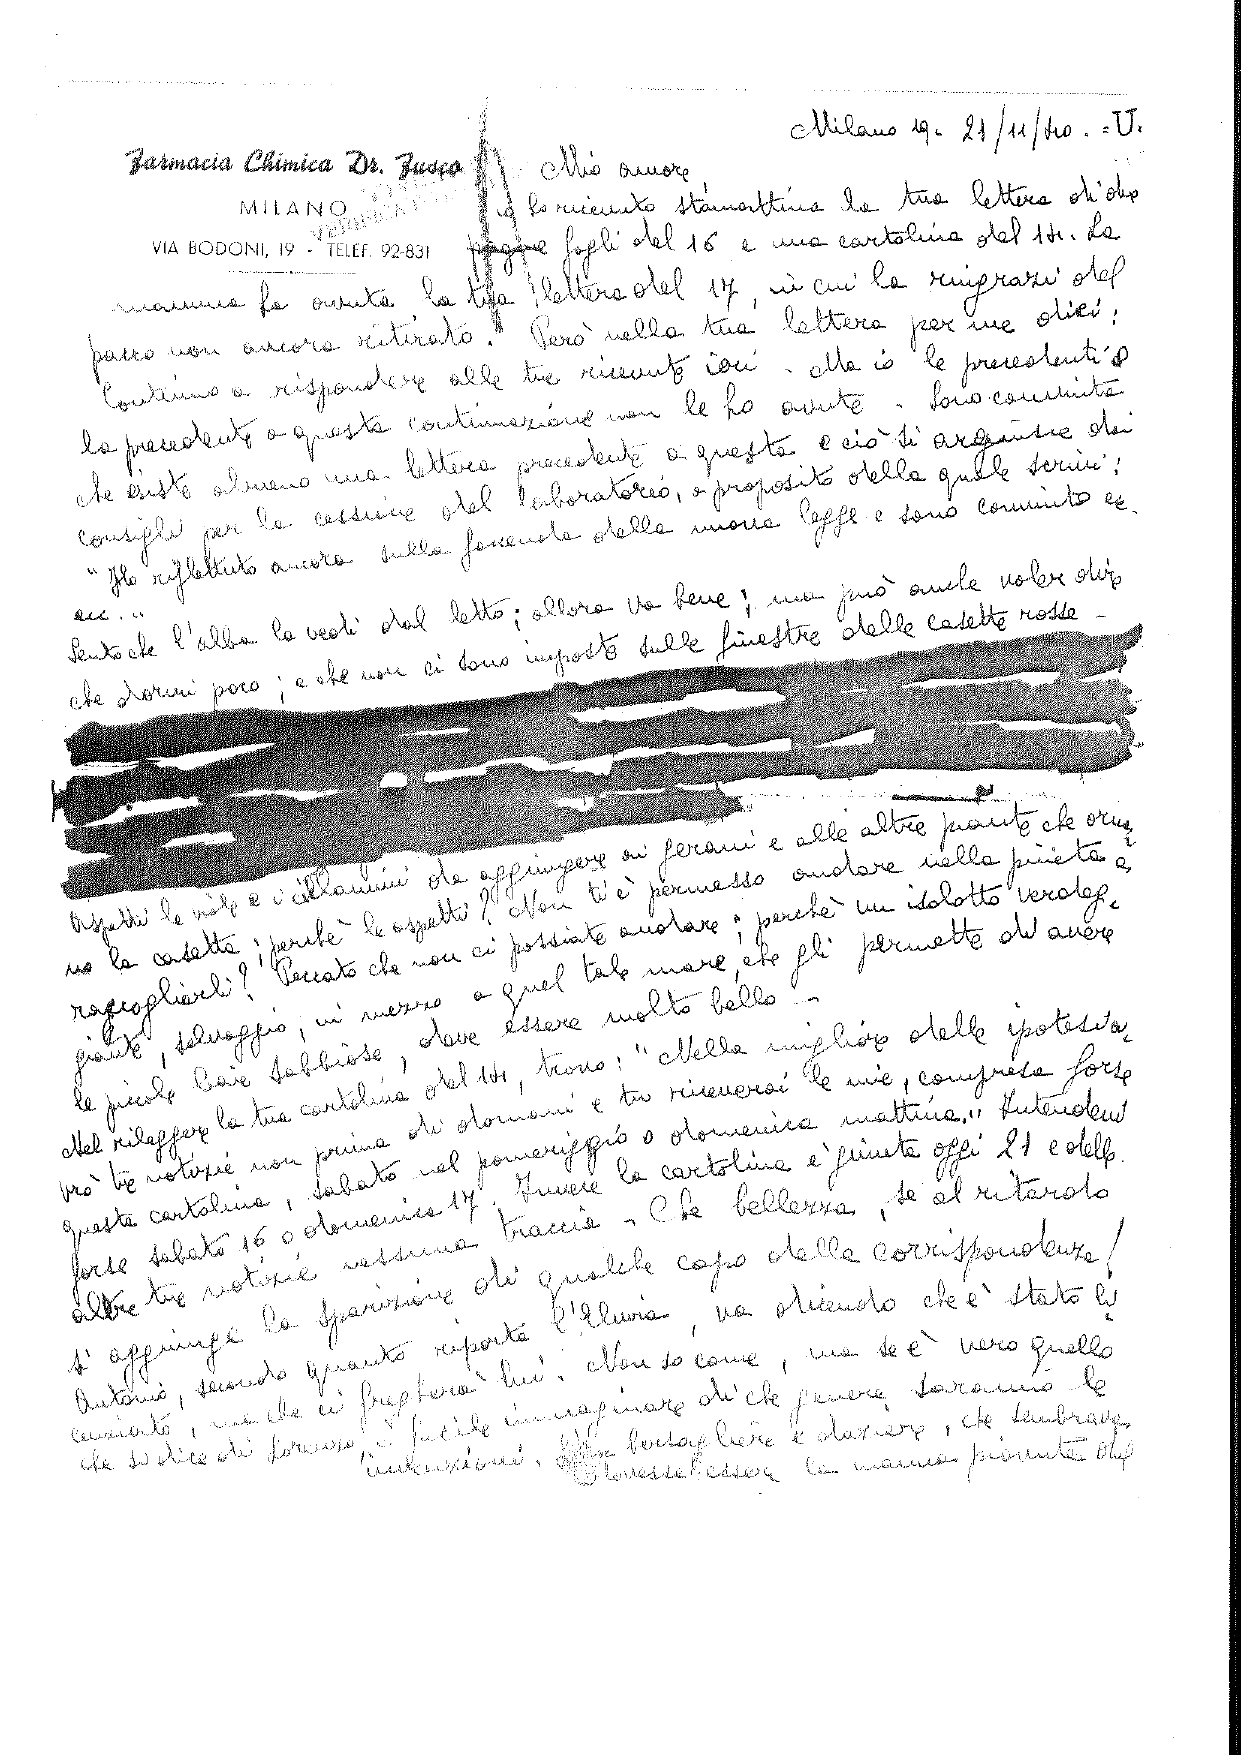 Milano 19 - 21/11/40. = U.
Farmacia Chimica Dr. Fusco
MILANO
VIA BODONI, 19 - TELEF. 92-831
Mio amore,
ho ricevuto stamattina la tua lettera di due
pagine fogli del 16 e una cartolina del 14. La
mamma ha avuto la tua lettera del 17, in cui la ringrazi del
pacco non ancora ritirato. Però nella tua lettera per me dici:
Continuo a rispondere alle tue ricevute ieri. Ma io le precedenti o
la precedente a questa continuazione non le ho avute. Sono convinta
che esiste almeno una lettera precedente a questa e ciò si arguisce dai
consigli per la cessione del laboratorio, a proposito della quale scrivi:
"Ho riflettuto ancora sulla faccenda della nuova legge e sono convinto ec.
ecc."
Sento che l'alba la vedi dal letto; allora va bene; ma può anche voler dire
che dormi poco; e che non ci sono imposte sulle finestre delle casette rosse -
Aspetti le viole e i ciclamini da aggiungere ai gerani e alle altre piante che orna,
no la casetta; perchè le aspetti? Non ti è permesso andare nella pineta a
raccoglierli? Peccato che non ci possiate andare; perchè un isolotto verdeg,
giante, selvaggio, in mezzo a quel tale mare, che gli permette di avere
le piccole baie sabbiose, deve essere molto bello -
Nel rileggere la tua cartolina del 14, trovo: "Nella migliore delle ipotesi a,
vrò tue notizie non prima di domani e tu riceverai le mie, compresa forse
questa cartolina, sabato nel pomeriggio o domenica mattina." Intendevi
forse sabato 16 o domenica 17. Invece la cartolina è giunta oggi 21 e delle
altre tue notizie nessuna traccia - Che bellezza, se al ritardo
s'aggiunge la sparizione di qualche capo della corrispondenza!
Antonio, secondo quanto riporta l'Elluvia, va dicendo che è stato li,
cenziato, ma che ci fregherà lui. Non so come, ma se è vero quello
che si dice di Lorenzo, è facile immaginare di che genere saranno le
intenzioni. bersagliere e daziere, che sembrava
dovesse essere la manna piovuta dal